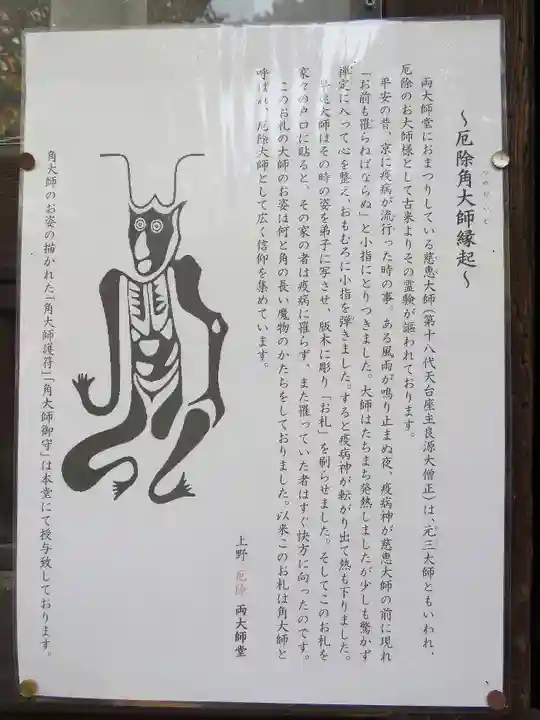 ～厄除角大師縁起～
つのだいし
両大師堂におまつりしている慈恵大師(第十八代天台座主良源大僧正)は、元三大師ともいわれ、
厄除のお大師様として古来よりその霊験が謳われております。
平安の昔、京に疫病が流行った時の事。ある風雨が鳴り止まぬ夜、疫病神が慈恵大師の前に現れ
「お前も罹らねばならぬ」と小指にとりつきました。大師はたちまち発熱しましたが少しも驚かず
禅定に入って心を整え、おもむろに小指を弾きました。すると疫病神が転がり出て熱も下りました。
大師はその時の姿を弟子に写させ、版木に彫り「お札」を刷らせました。そしてこのお札を
家々の戸口に貼ると、その家の者は疫病に罹らず、また罹っていた者はすぐ快方に向ったのです。
このお札の大師のお姿は何と角の長い魔物のかたちをしておりました。以来このお札は角大師と
呼ばれ、厄除大師として広く信仰を集めています。
上野 厄除 両大師堂
角大師のお姿の描かれた「角大師護符」「角大師御守」は本堂にて授与致しております。